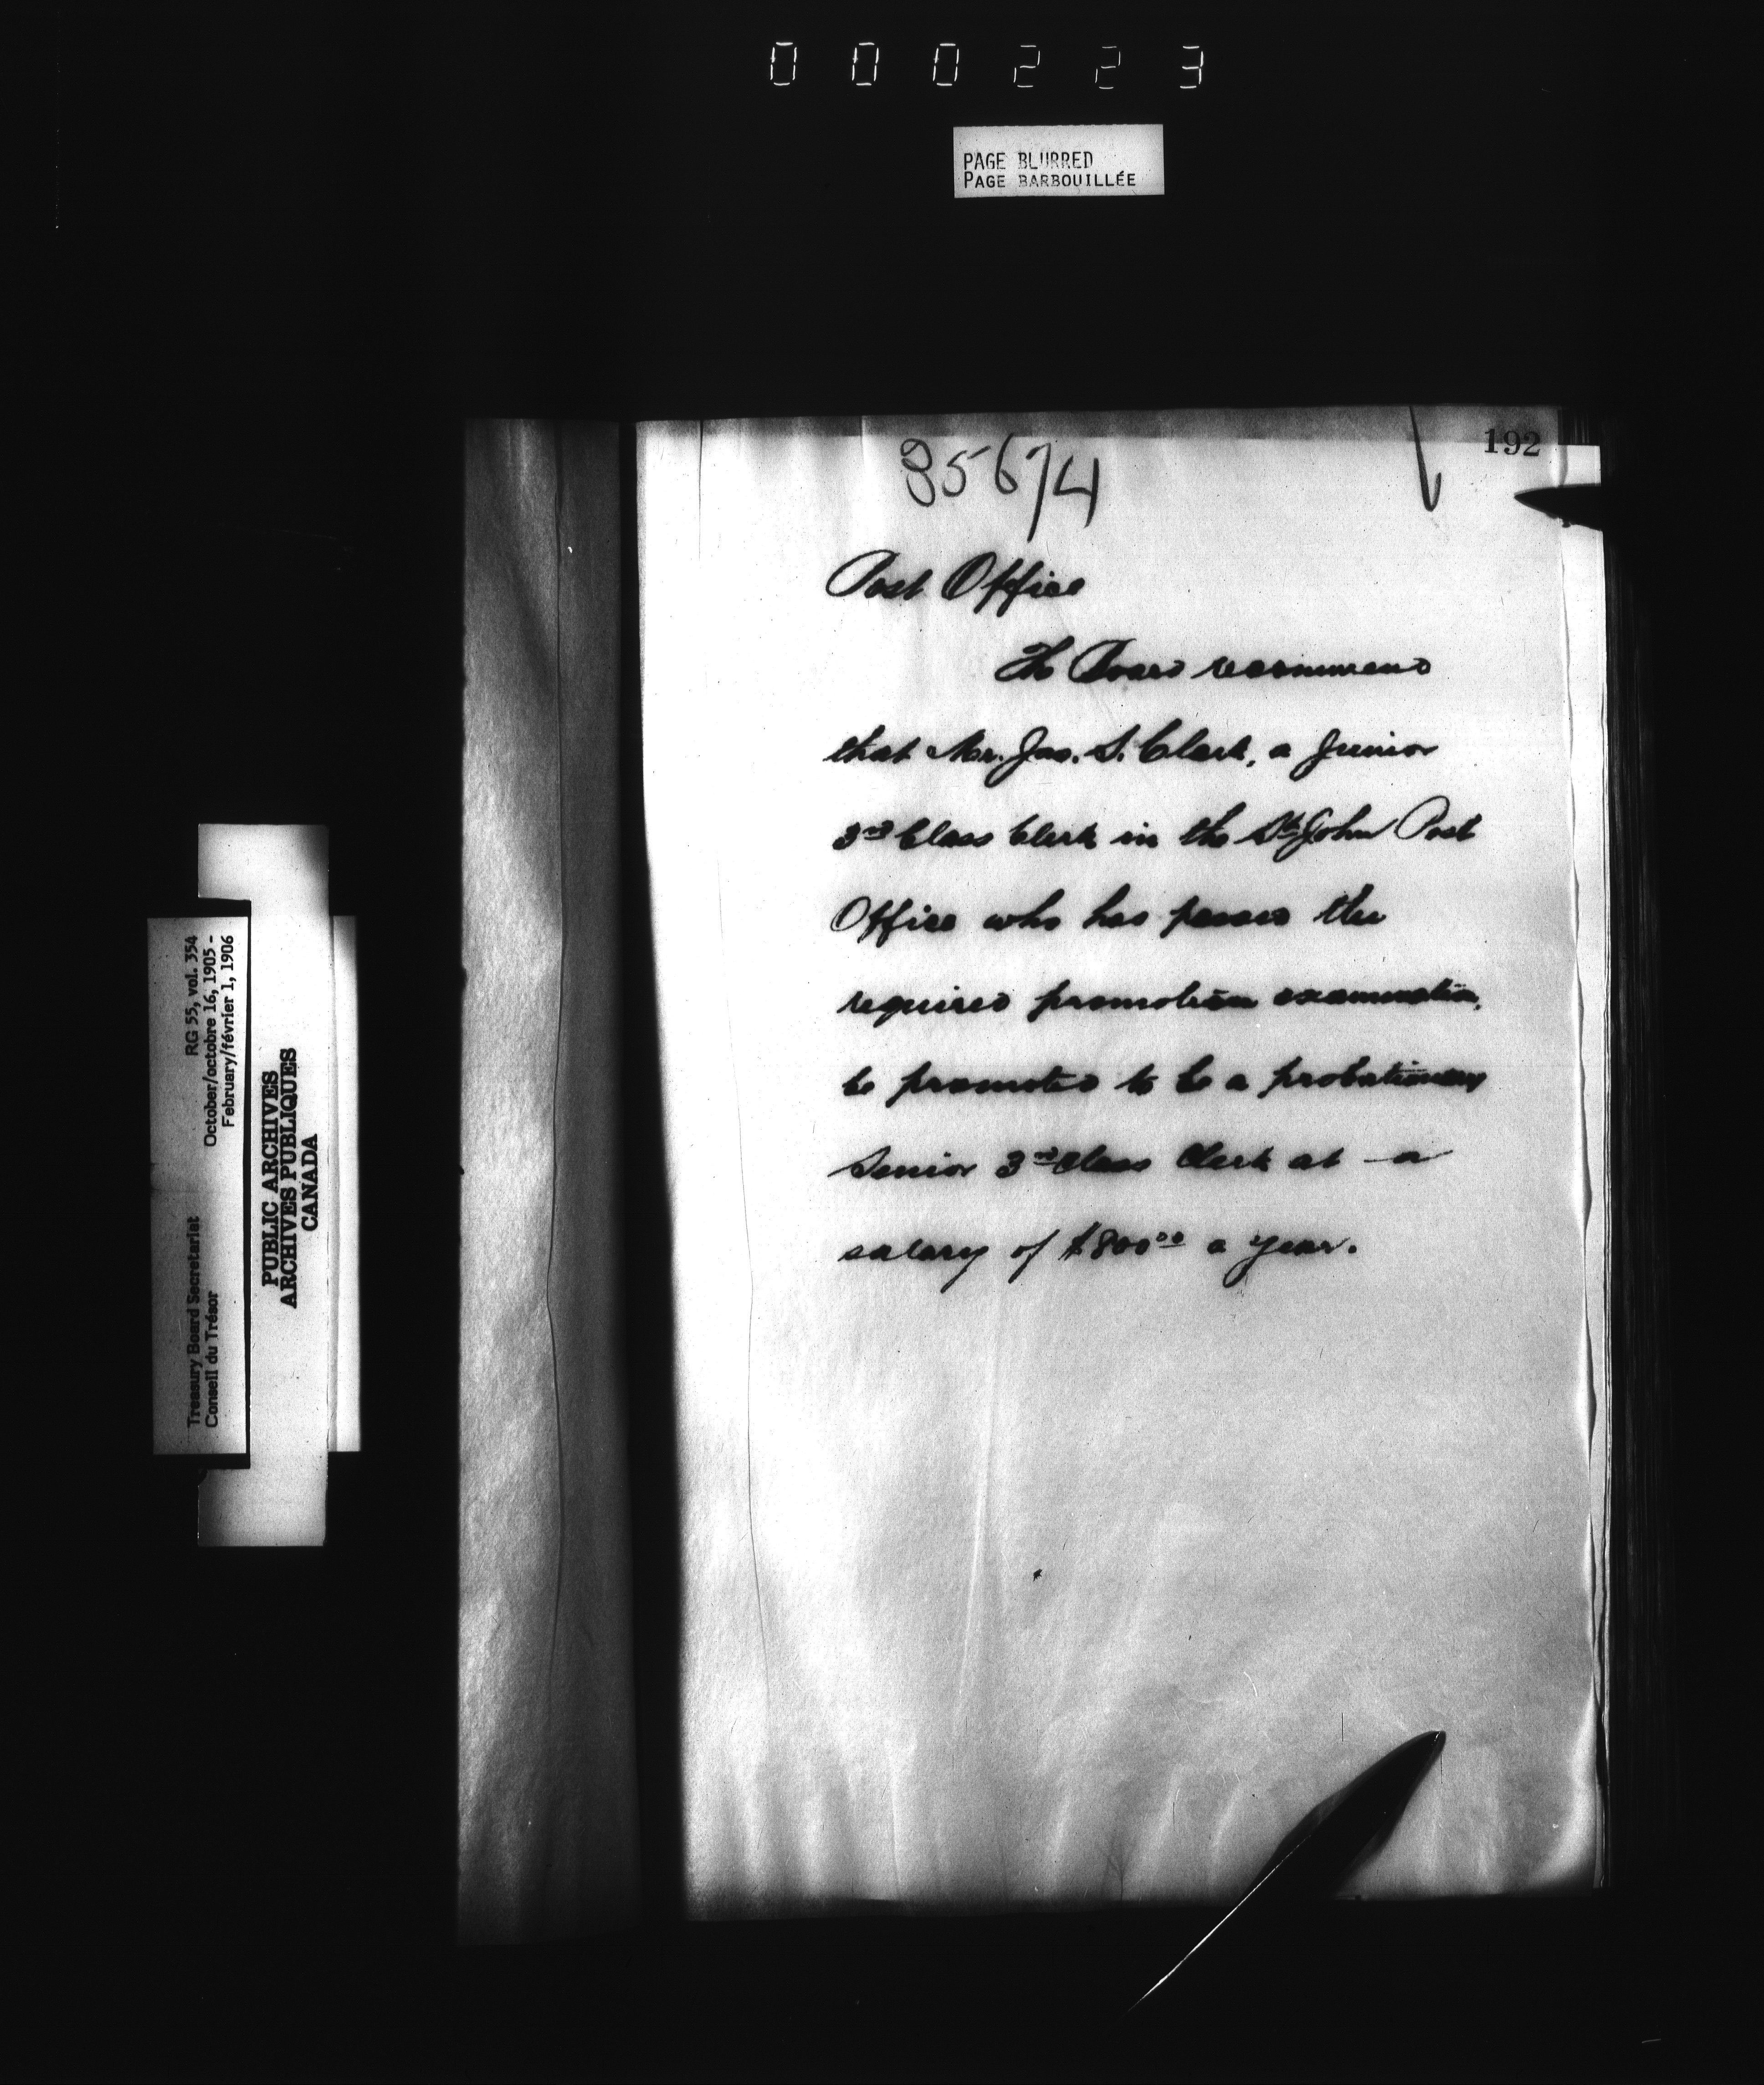 000223
PAGE BLURRED
PAGE BARBOUILLÉE
192
85674
Post Office
The Board recommend
that Mr. Jas. S. Clark, a Junior
3rd Class Clerk in the St. John Post
Office who has passed the
required promotion examination,
be promoted to be a probationary
Senior 3rd Class Clerk at a
salary of $800.00 a year.
Treasury Board Secretariat RG 55, vol. 354
Conseil du Trésor October/octobre 16, 1905 -
February/février 1, 1906
PUBLIC ARCHIVES
ARCHIVES PUBLIQUES
CANADA